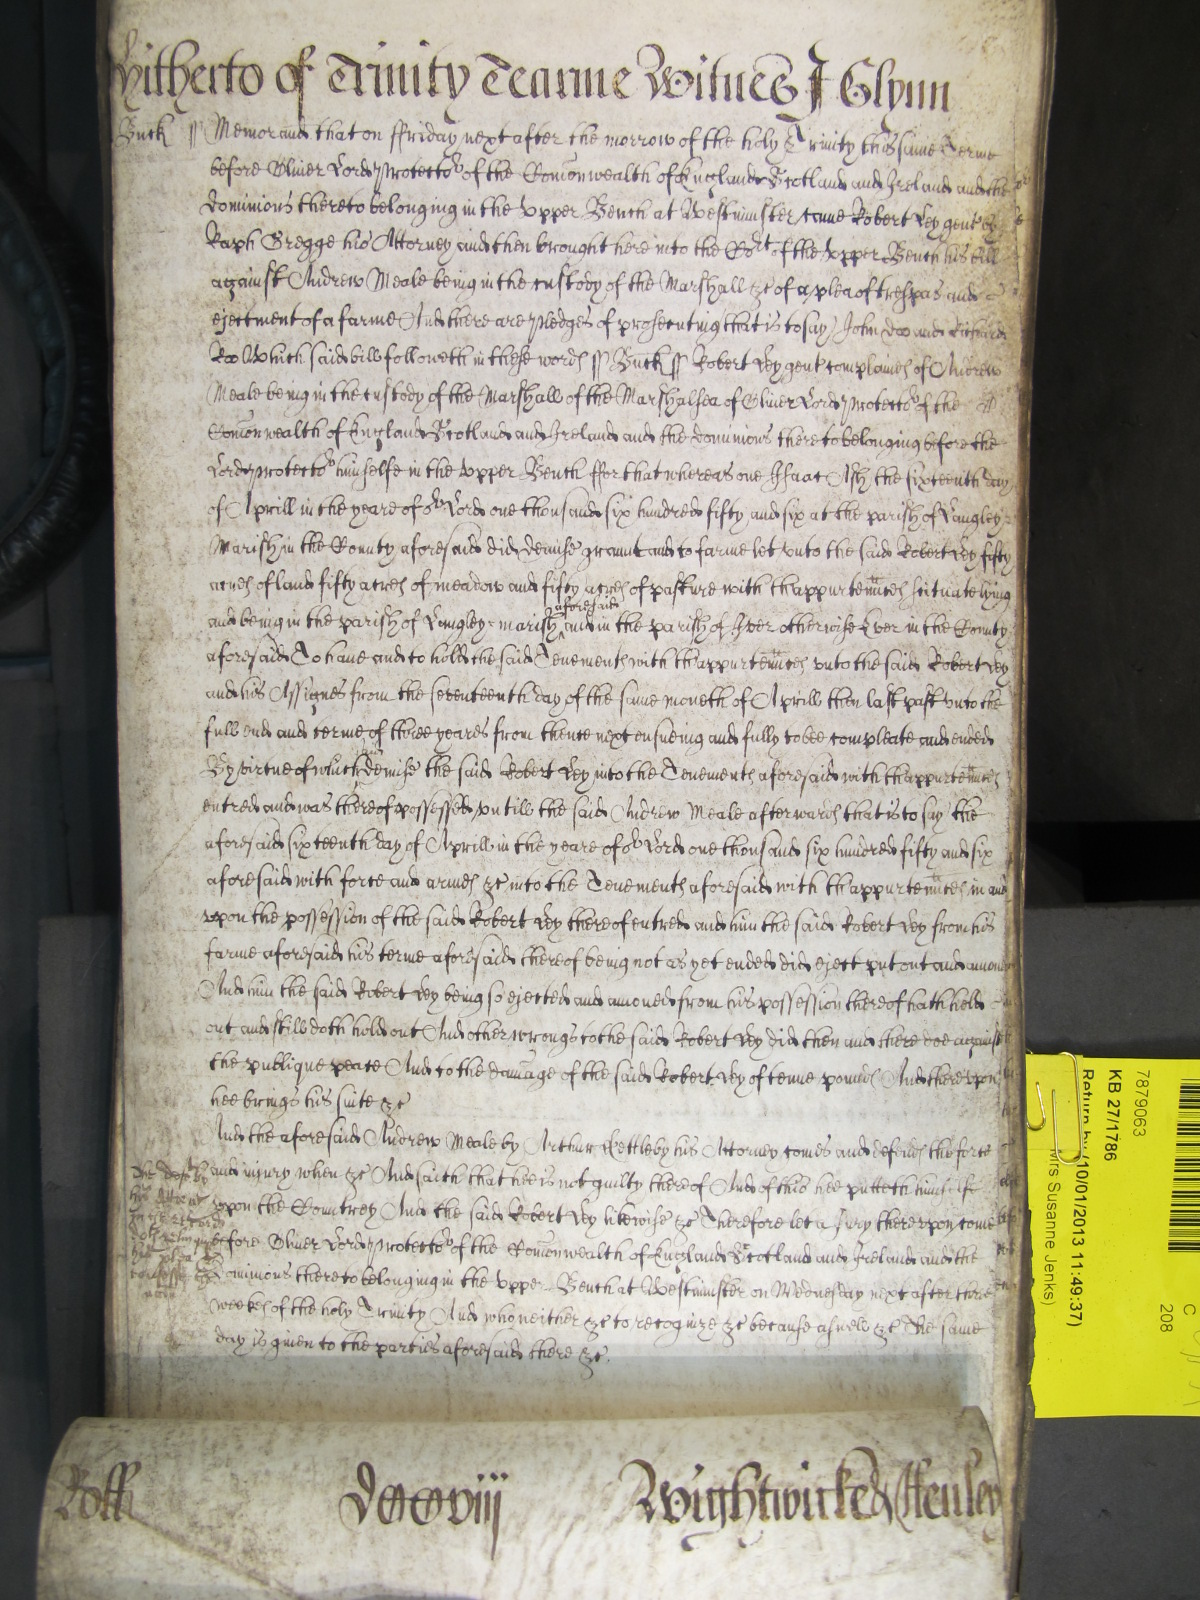 hitherto of Trinity Tearme Witnes J Glynn
Buck ss Memorand that on ffriday next after the morrow of the holy Trinity this same Terme
before Oliver Lord Protector of the Comonwealth of England Scotland and Ireland and the
dominions thereto belonging in the Upper Bench at Westminster came Robert Ley gent by
Raph Gregge his Attorney and then brought here into the Cort of the upper Bench his bill
against Andrew Meale being in the custody of the Marshall &c of a plea of trespas and
ejectment of a farme And there are pledges of prosecuting that is to say John Doo and Richard
Roo Which said bill followeth in these words ss Buck ss Robert Ley gent complaines of Andrew
Meale being in the custody of the Marshall of the Marshalsea of Oliver Lord Protector of the
Comonwealth of England Scotland and Ireland and the dominions thereto belonging before the
Lord Protector himselfe in the Upper Bench ffor that whereas one Isaac Ash the sixteenth day
of Aprill in the yeare of or Lord one thousand six hundred fifty and six at the parish of Langley
Marish in the County aforesaid did demise graunt and to farme let unto the said Robert Ley fifty
acres of land fifty acres of meadow and fifty acres of pasture with thappurtenances scituate lying
and being in the parish of Langley marish aforesaid and in the parish of Iver otherwise Ever in the County
aforesaid To have and to hold the said Tenements with thappurtenances unto the said Robert Ley
and his Assignes from the seventeenth day of the same moneth of Aprill then last past unto the
full end and terme of three yeares from thence next ensueing and fully to bee compleate and ended
By virtue of which demise the said Robert Ley into the Tenements aforesaid with thappurtenances
entred and was thereof possessed untill the said Andrew Meale afterwards that is to say the
aforesaid sixteenth day of Aprill in the yeare of or Lord one thousand six hundred fifty and six
aforesaid with force and armes &c into the Tenements aforesaid with thappurtenances in and
upon the possession of the said Robert Ley thereof entred and him the said Robert Ley from his
farme aforesaid his terme aforesaid thereof being not as yet ended did eject put out and amove
And him the said Robert Ley being so ejected and amoved from his possession thereof hath held
out and still doth hold out And other wrongs to the said Robert Ley did then and there doe against
the publique peace And to the damage of the said Robert Ley of tenne pounds And thereupon
hee brings his suite &c
And the aforesaid Andrew Meale by Arthur Kettleby his Attorney comes and defends the force
and injury when &c And saith that hee is not guilty thereof And of this hee putteth himselfe
upon the Countrey And the said Robert Ley likewise &c Therefore let a Jury thereupon come
before Oliver Lord Protector of the Comonwealth of England Scotland and Ireland and the
Dominions thereto belonging in the Upper Bench at Westminster on Wednesday next after three
weekes of the holy Trinity And who neither &c to recognize &c because aswell &c The same
day is given to the parties aforesaid there &c.
Roff dccviij Wightwicke & ffensey
7879063
KB 27/1786
Return by (10/01/2013 11:49:37)
Mrs Susanne Jenks)
C
208